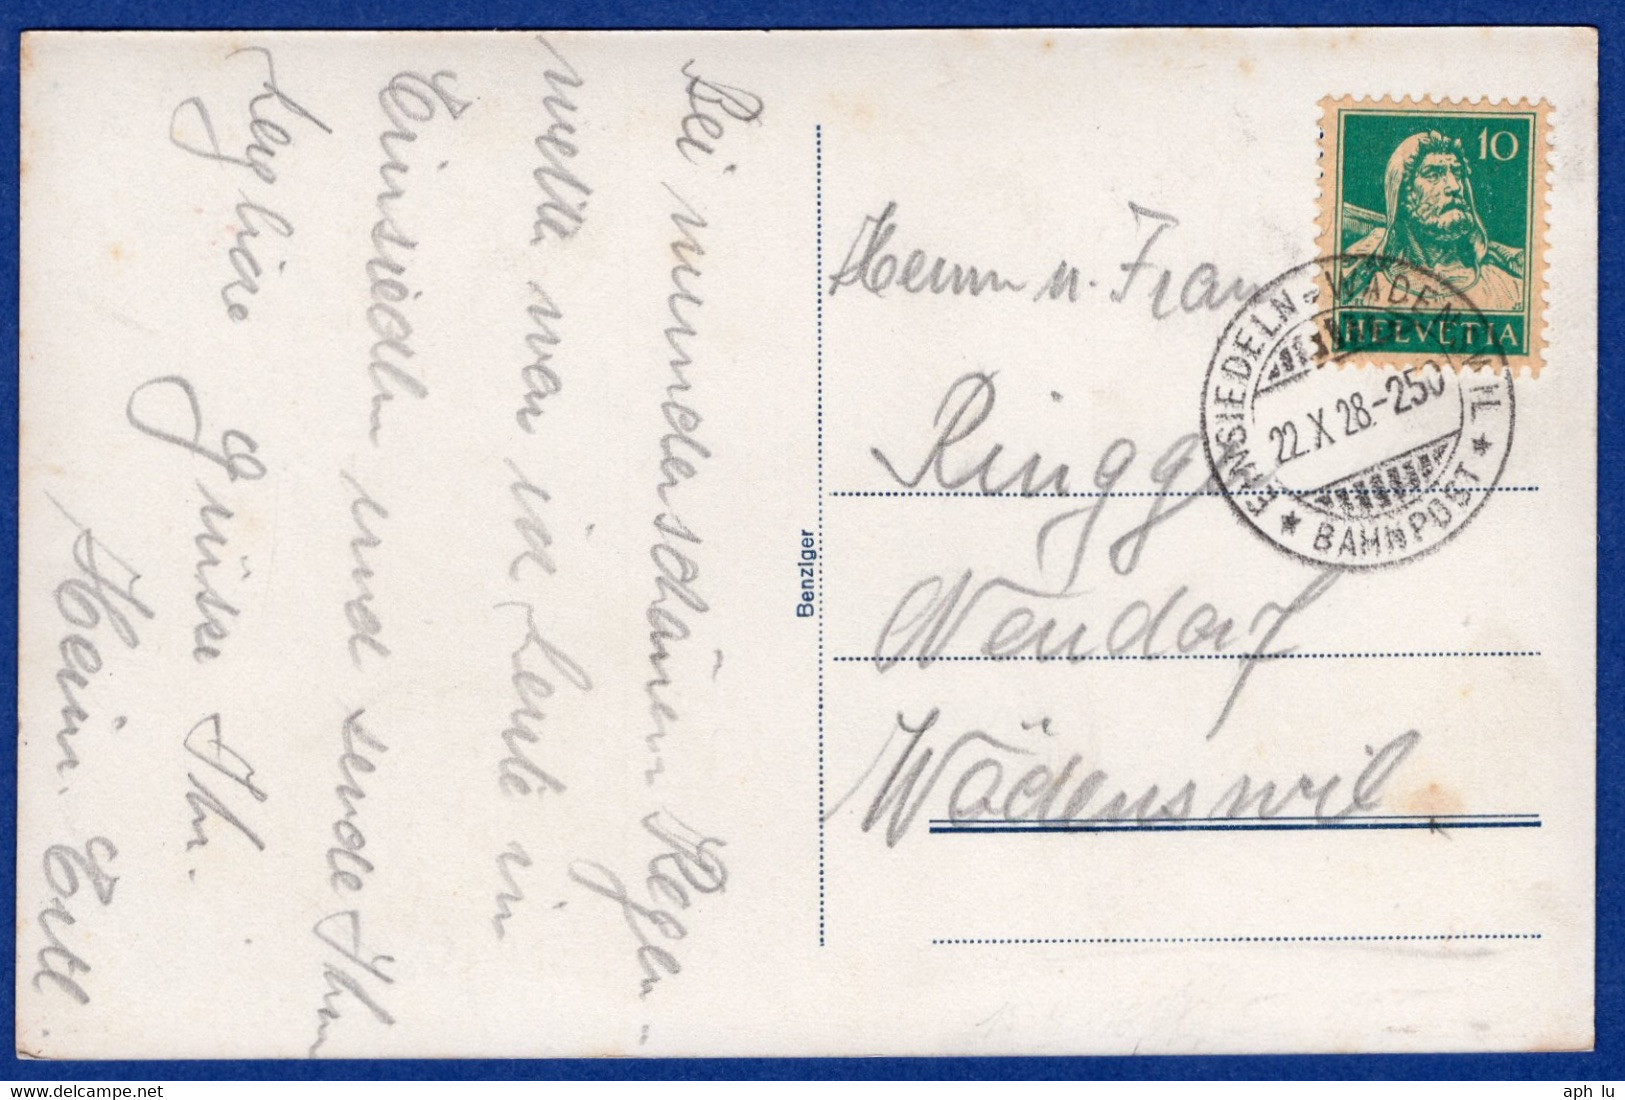 Bei wunderschönem Regen-
wetter war ich heute in
Einsiedeln und sende Ihnen
herzliche Grüsse Ihr.
Benziger
Herrn u. Frau
Neudorf
Wädenswil
10
HELVETIA
EINSIEDELN-WÄDENSWIL
22.X.28.-250
★ BAHNPOST ★
aph lu